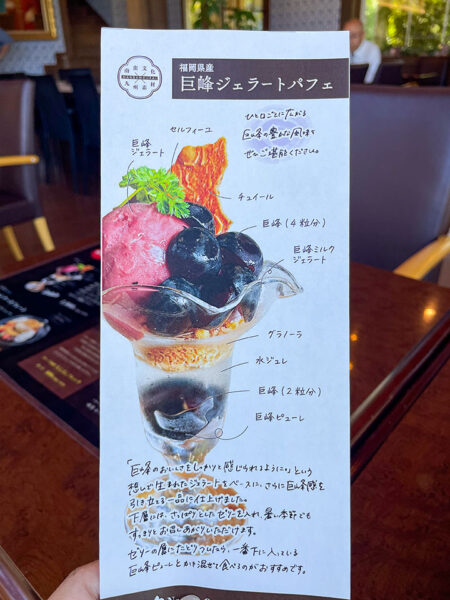 南蛮文化
九州素材
福岡県産
巨峰ジェラートパフェ
ひと口ごとに広がる
巨峰の豊かな風味を
ぜひご堪能ください。
セルフィーユ
巨峰
ジェラート
チュイール
巨峰(4粒分)
巨峰ミルク
ジェラート
グラノーラ
水ジュレ
巨峰(2粒分)
巨峰ピューレ
「巨峰のおいしさをしっかりと感じられるように。」という
想いで生まれたジェラートをベースに、さらに巨峰感を
引き立てる一品に仕上げました。
下層には、さっぱりとしたゼリーを入れ、暑い季節でも
すっきりとお召しあがりいただけます。
ゼリーの層にたどりついたら、一番下に入っている
巨峰ピューレとかき混ぜて食べるのがおすすめです。